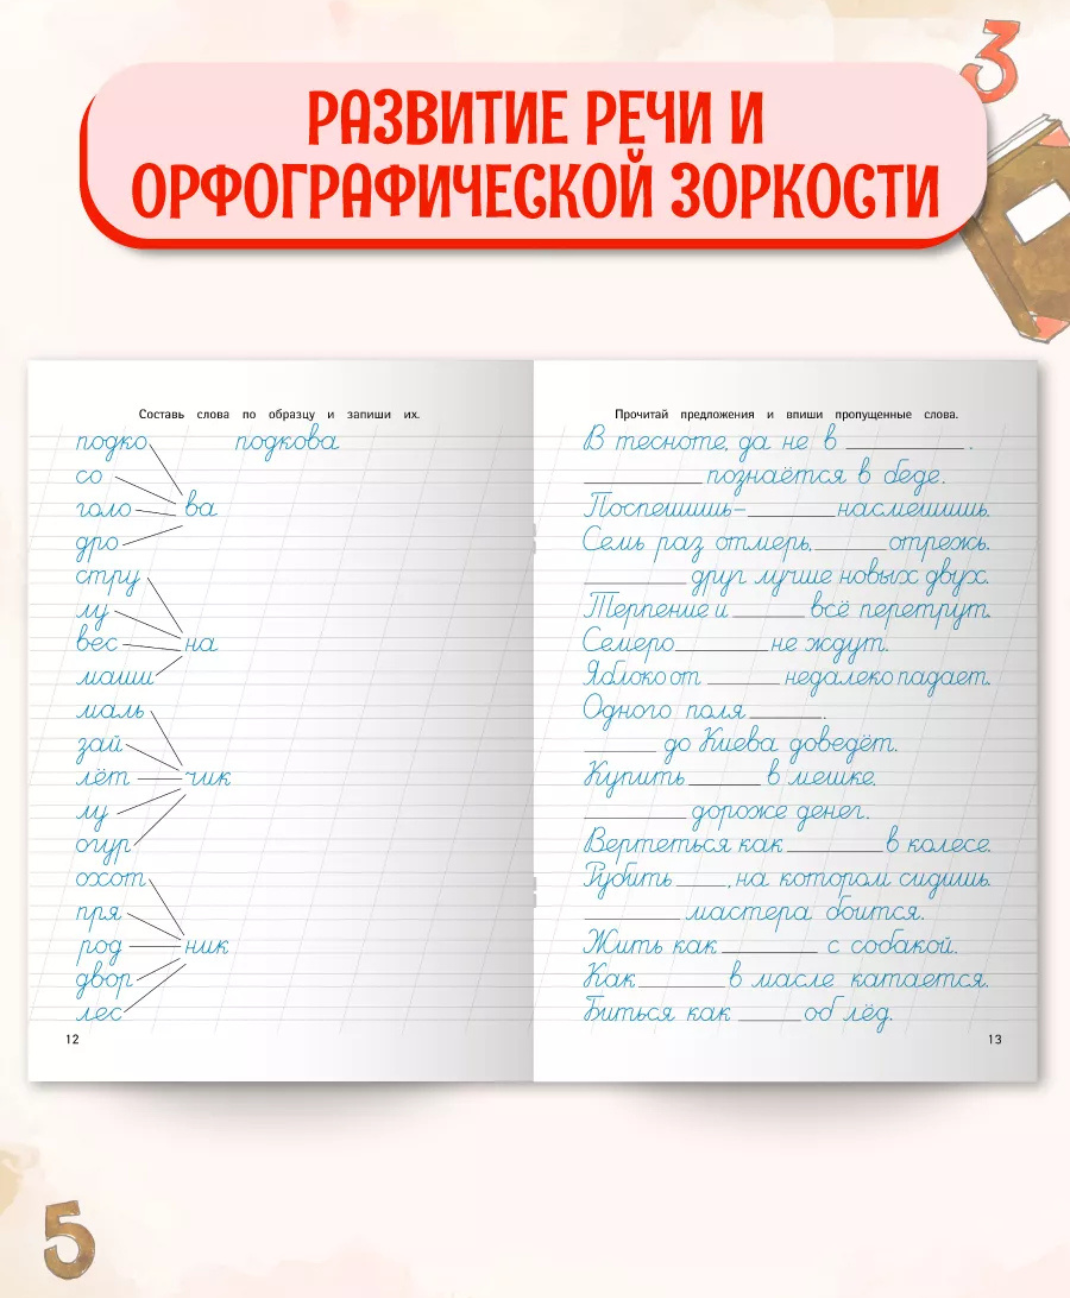 3
РАЗВИТИЕ РЕЧИ И
ОРФОГРАФИЧЕСКОЙ ЗОРКОСТИ
Составь слова по образцу и запиши их.
подко подкова
со
голо ва
дро
стру
лу
вес на
маши
маль
зай
лёт чик
лу
огур
охот
пря
род ник
двор
лес
12
Прочитай предложения и впиши пропущенные слова.
В тесноте, да не в ________.
________ познаётся в беде.
Поспешишь – ________ насмешишь.
Семь раз отмерь, ________ отрежь.
________ друг лучше новых двух.
Терпение и ________ всё перетрут.
Семеро ________ не ждут.
Яблоко от ________ недалеко падает.
Одного поля ________.
________ до Киева доведёт.
Купить ________ в мешке.
________ дороже денег.
Вертеться как ________ в колесе.
Рубить ________, на котором сидишь.
________ мастера боится.
Жить как ________ с собакой.
Как ________ в масле катается.
Биться как ________ об лёд.
13
5